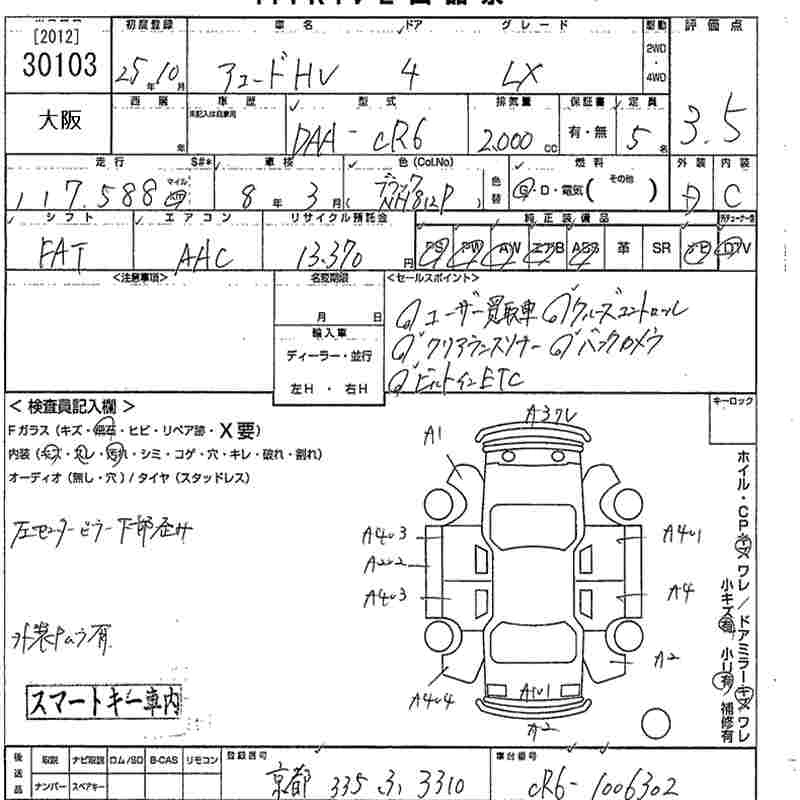 [2012]
30103
初度登録 車名 ドア グレード 駆動 評価点
25年10月 アコードHV 4 LX 2WD・4WD 3.5
大阪
西暦 車歴 型式 排気量 保証書 定員
年 未記入は自家用 DAA-CR6 2,000cc 有・無 5名
走行 S#* 車検 色(Col.No) 燃料 外装 内装
117,588 マイル km 8年3月 NH812P 色替 G・D・電気( その他 ) D C
シフト エアコン リサイクル預託金 純正装備品
FAT AAC 13,370円 PS PW AW エアB ABS 革 SR ナビ TV
<注意事項> 名変期限 <セールスポイント>
月 日
①ユーザー買取車 ①クルーズコントロール
輸入車
①クリアランスソナー ①バックカメラ
ディーラー・並行
①ビルトインETC
左H・右H
キーロック
<検査員記入欄>
Fガラス(キズ・飛石・ヒビ・リペア跡・X要)
内装(キズ・スレ・汚れ・シミ・コゲ・穴・キレ・破れ・割れ)
オーディオ(無し・穴)/タイヤ(スタッドレス)
左センターピラー下部歪み
外装ムラ有
スマートキー車内
A1
A403
A4
A403
A404
A401
A4
A2
A2
ホイル・CPキズワレ/ドアミラーキズワレ
小キズ有 小凹有 補修有
後送品 取説 ナビ取説 ロム/SD B-CAS リモコン 登録番号 車台番号
ナンバー スペアキー 京都 335 す 3310 CR6-1006302